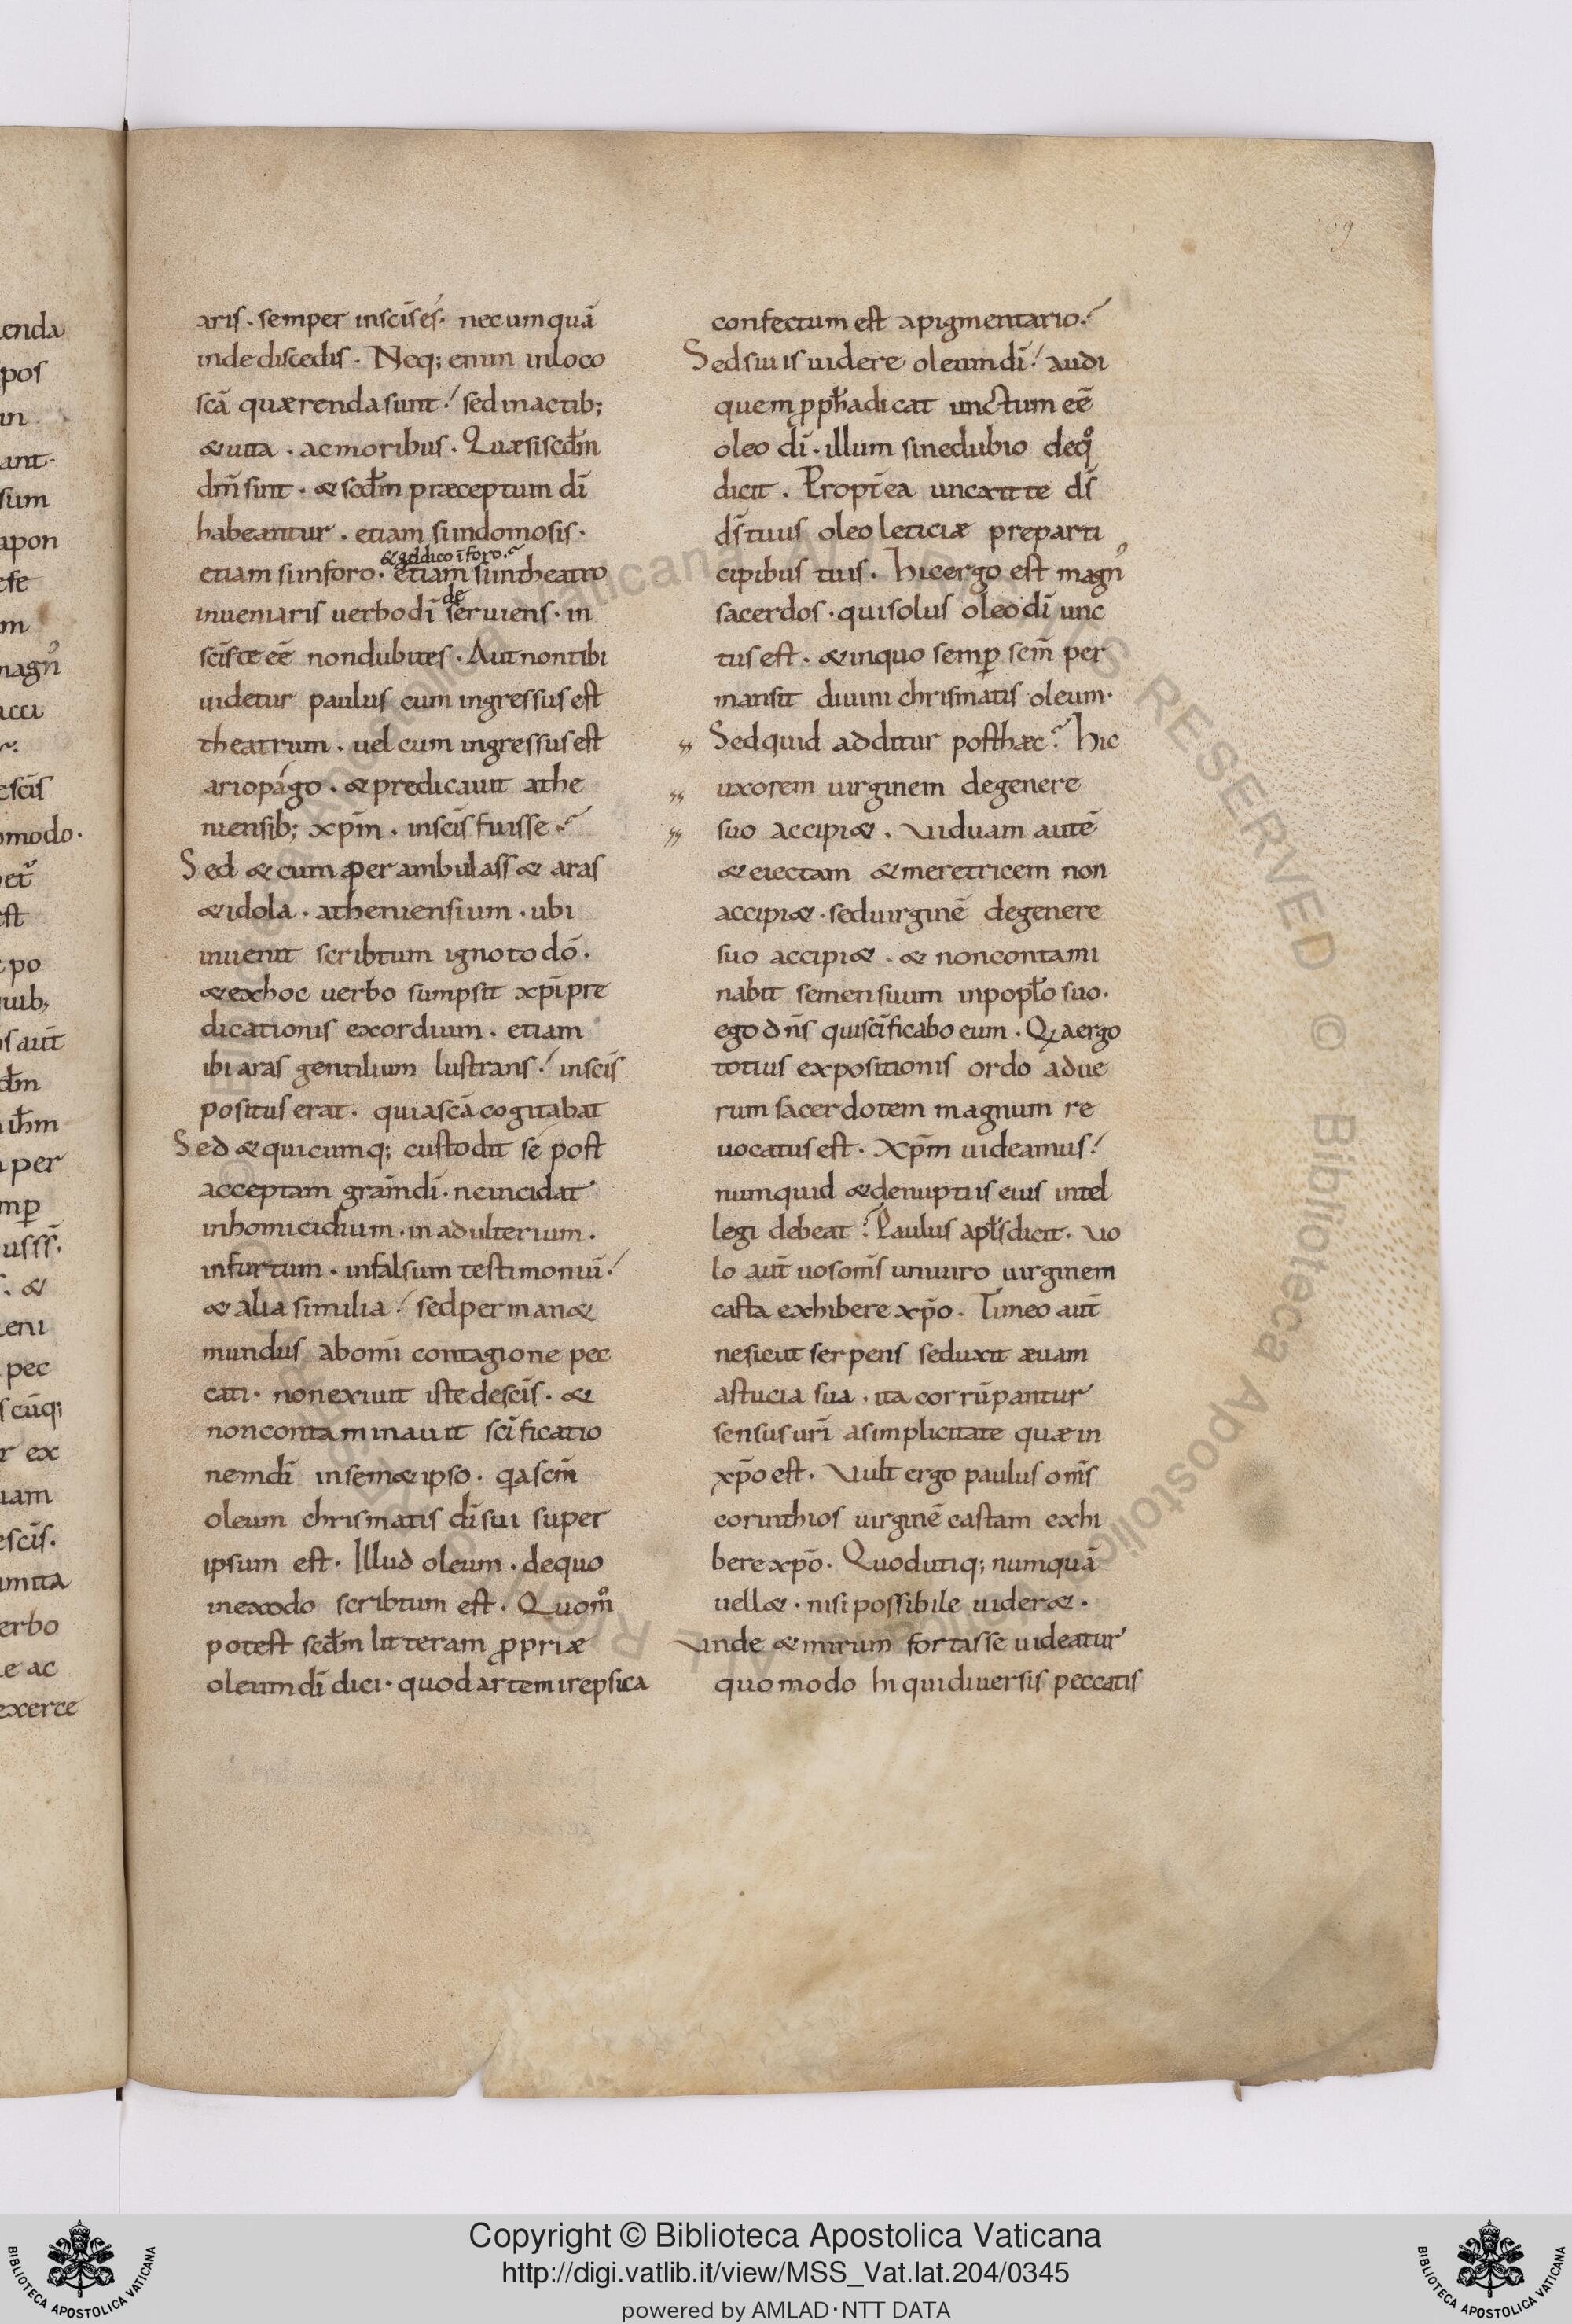 enda
pos
in
ant·
sum
apon
efe
m
magn᾽
acci
escı̄s
omodo·
est
po
uib;
s aut̄
ihm̄
per
mꝑ
&
eni
pec
s cūq;
r ex
uam
escı̄s.
umita
erbo
e ac
excerce
aris . semper inscı̄s és· nec umquā
inde discedis . Neq; enim inloco
scā quærenda sunt ; sed inactib;
& uita . ac moribus . Quæ si scd̄m
dm̄ sint . & scd̄m præceptum dı̄
habeantur . etiam si in domo sis·
& addico ı̄ foro·
etiam si inforo· etiam si intheatro
de
inueniaris uerbo dı̄ seruiens· in
scı̄s te eē non dubites . Aut non tibi
uidetur paulus cum ingressus est
theatrum . uel cum ingressus est
ariopago . & predicauit athe
niensib; xp̄m . inscı̄s fuisse ?
Sed & cum perambulass& aras
& idola . atheniensium . ubi
inuenit scribtum ignoto dō .
& exhoc uerbo sumpsit xp̄i pre
dicationis exordium . etiam
ibi aras gentilium lustrans ; inscı̄s
positus erat . quia scā cogitabat
Sed & quicumq; custodit sé post
acceptam gram̄ dı̄ . ne incidat
inhomicidium . in adulterium .
infurtum . infalsum testimoniū ;
& alia similia ; sed perman&
mundus ab omı̄ contagione pec
cati . non exiuit iste descı̄s . &
non contaminauit scı̄ficatio
nem dı̄ in sem& ipso . qa scm̄
oleum chrismatis dı̄ sui super
ipsum est . Illud oleum . de quo
inexodo scribtum est . Quom̊
potest scd̄m litteram ꝓpriæ
oleum dı̄ dici . quod artem irepsica
69
confectum est a pigmentario ?
Sed si uis uidere oleum dı̄ ; audi
quem ꝓph̄a dicat unctum eē
oleo dı̄ . illum sine dubio de q̊
dicit . Propt̄ea uncxit te ds̄
ds̄ tuus oleo leticiæ preparti
cipibus tuis . Hic ergo est magn᾽
sacerdos . qui solus oleo dı̄ unc
tus est . & inquo semꝑ scm̄ per
mansit diuini chrismatis oleum·
Sed quid additur post hæc ? Hic
uxorem uirginem degenere
suo accipi& . Viduam autē
& eiectam & meretricem non
accipi& . sed uirginē degenere
suo accipi& . & non contami
nabit semen suum in popl̄o suo .
ego dn̄s qui scı̄ficabo eum . Qa ergo
totius expositionis ordo adue
rum sacerdotem magnum re
uocatus est . Xp̄m uideamus ;
numquid & denuptiis eius intel
legi debeat ? Paulus apl̄s dicit . Vo
lo aut̄ uos om̄s uni uiro uirginem
casta exhibere xp̄o . Timeo aut̄
ne sicut serpens seduxit æuam
astucia sua . ita corrūpantur
sensus urı̄ a simplicitate quæ in
xp̄o est . Vult ergo paulus om̄s
corinthios uirginē castam exhi
bere xp̄o . Quod utiq; numquā
uell& . nisi possibile uider& .
Vnde & mirum fortasse uideatur
quomodo hi qui diuersis peccatis
Copyright © Biblioteca Apostolica Vaticana
http://digi.vatlib.it/view/MSS_Vat.lat.204/0345
powered by AMLAD·NTT DATA
BIBLIOTECA APOSTOLICA VATICANA
BIBLIOTECA APOSTOLICA VATICANA